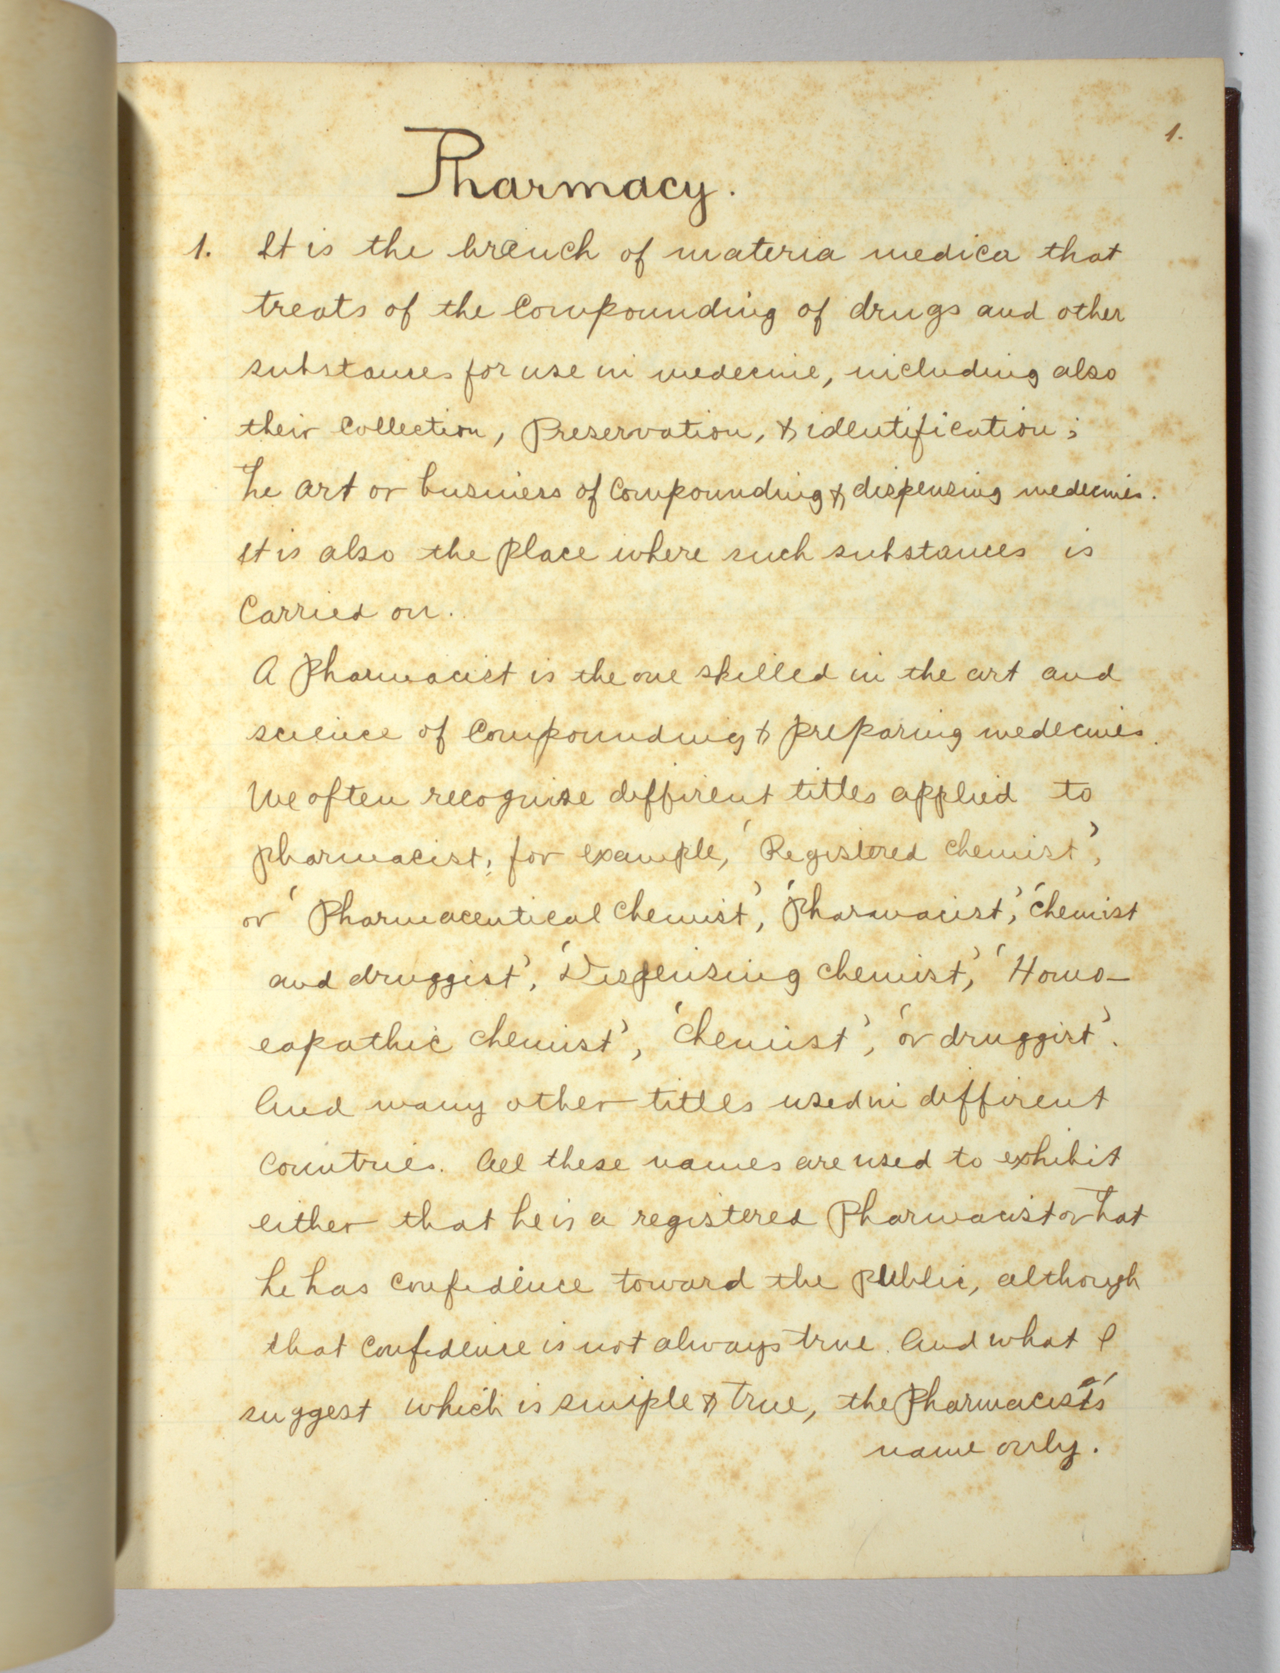 1.
Pharmacy.
1. It is the branch of materia medica that
treats of the Compounding of drugs and other
substances for use in medecine, including also
their Collection, Preservation, & identification;
he art or business of Compounding & dispensing medecines.
It is also the place where such substances is
Carried on.
A pharmacist is the one skilled in the art and
science of Compounding & preparing medecines.
We often recognise diffirent titles applied to
pharmacist; for example, 'Registered chemist',
or 'Pharmaceutical chemist', 'pharmacist', 'chemist
and druggist', 'Dispensing chemist', 'Homo-
eapathic chemist', 'chemist', 'or druggist'.
And many other titles used in diffirent
Countries. All these names are used to exhibit
either that he is a registered Pharmacist or hat
he has confidence toward the public, although
that Confidence is not always true. And what I
suggest which is simple & true, the Pharmacist's
name only.